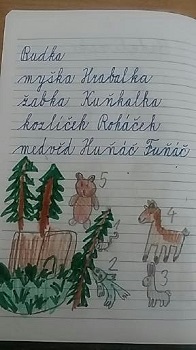 Budka
myška Hrabalka
žabka Kuňkalka
kozlíček Roháček
medvěd Huňáč Fuňáč
5
4
3
2